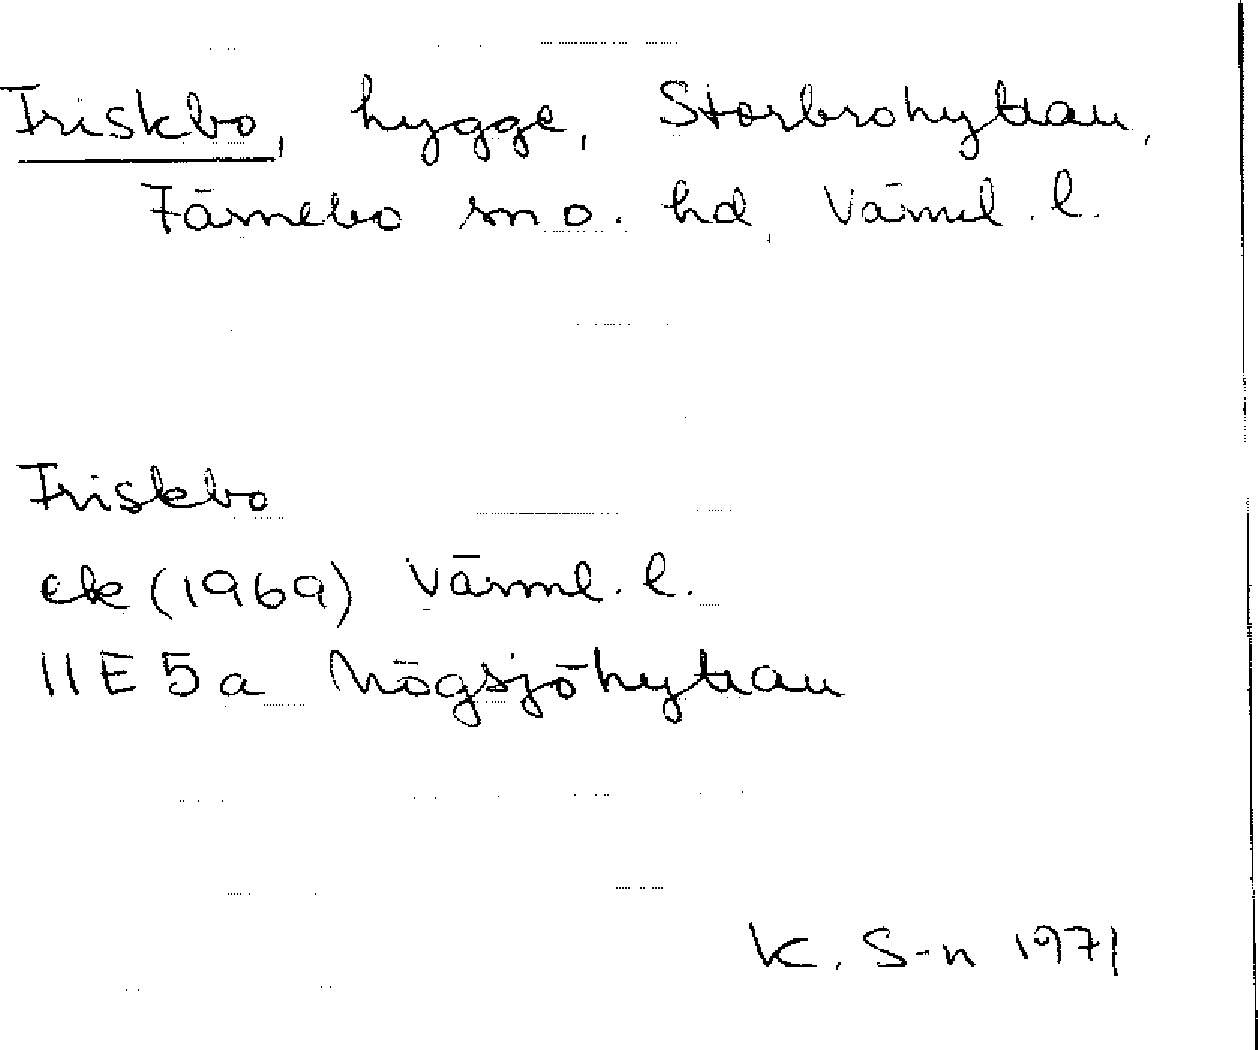 Triskbo, bygge, Storbrohyttan,
Färnebo sn o. hd, Värml. l.
Triskbo
ek (1969) Värml. l.
11E 5a Högsjöhyttan
K. S-n 1971